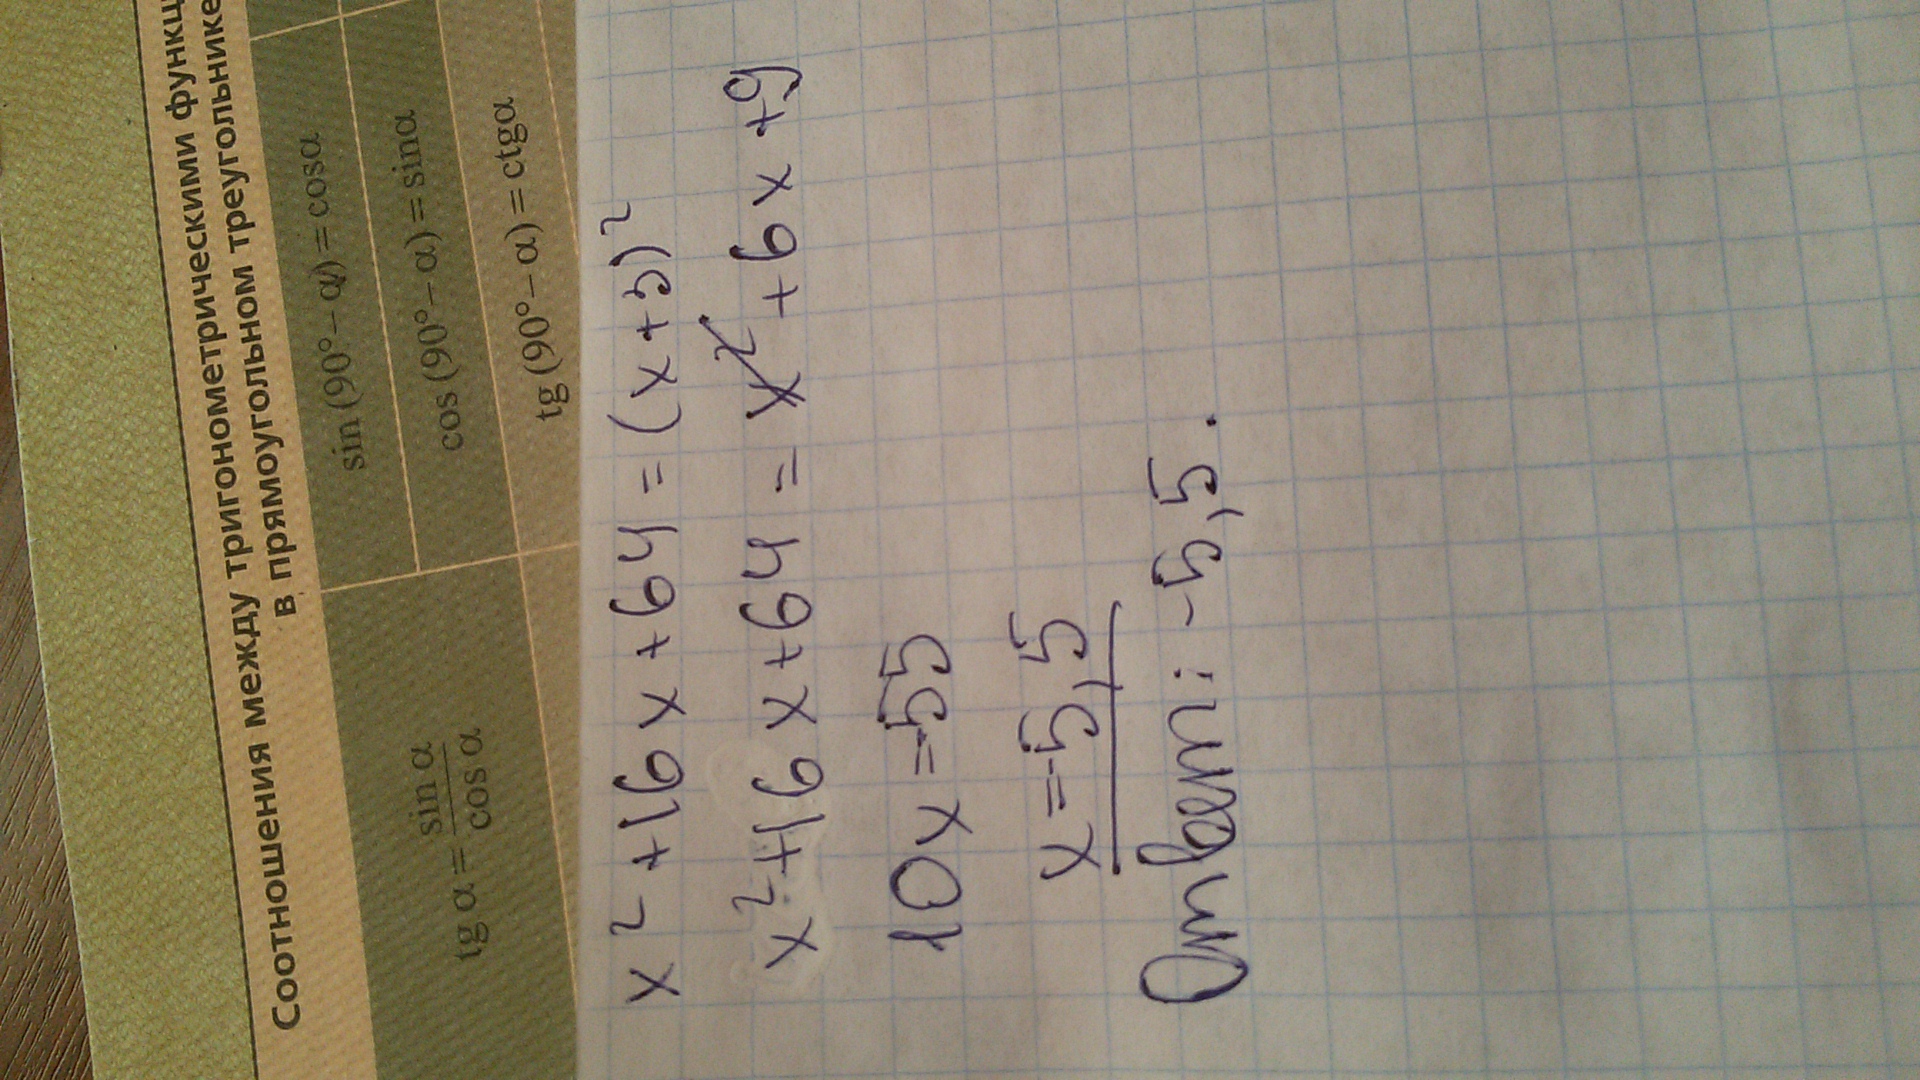 Соотношения между тригонометрическими функц
в прямоугольном треугольнике
tg α = sin α / cos α
sin (90° – α) = cosα
cos (90° – α) = sinα
tg (90° – α) = ctgα
x² +16x +64 = (x+3)²
x²+16x+64 = x² +6x +9
10x =-55
x=-5,5
Ответ: -5,5.